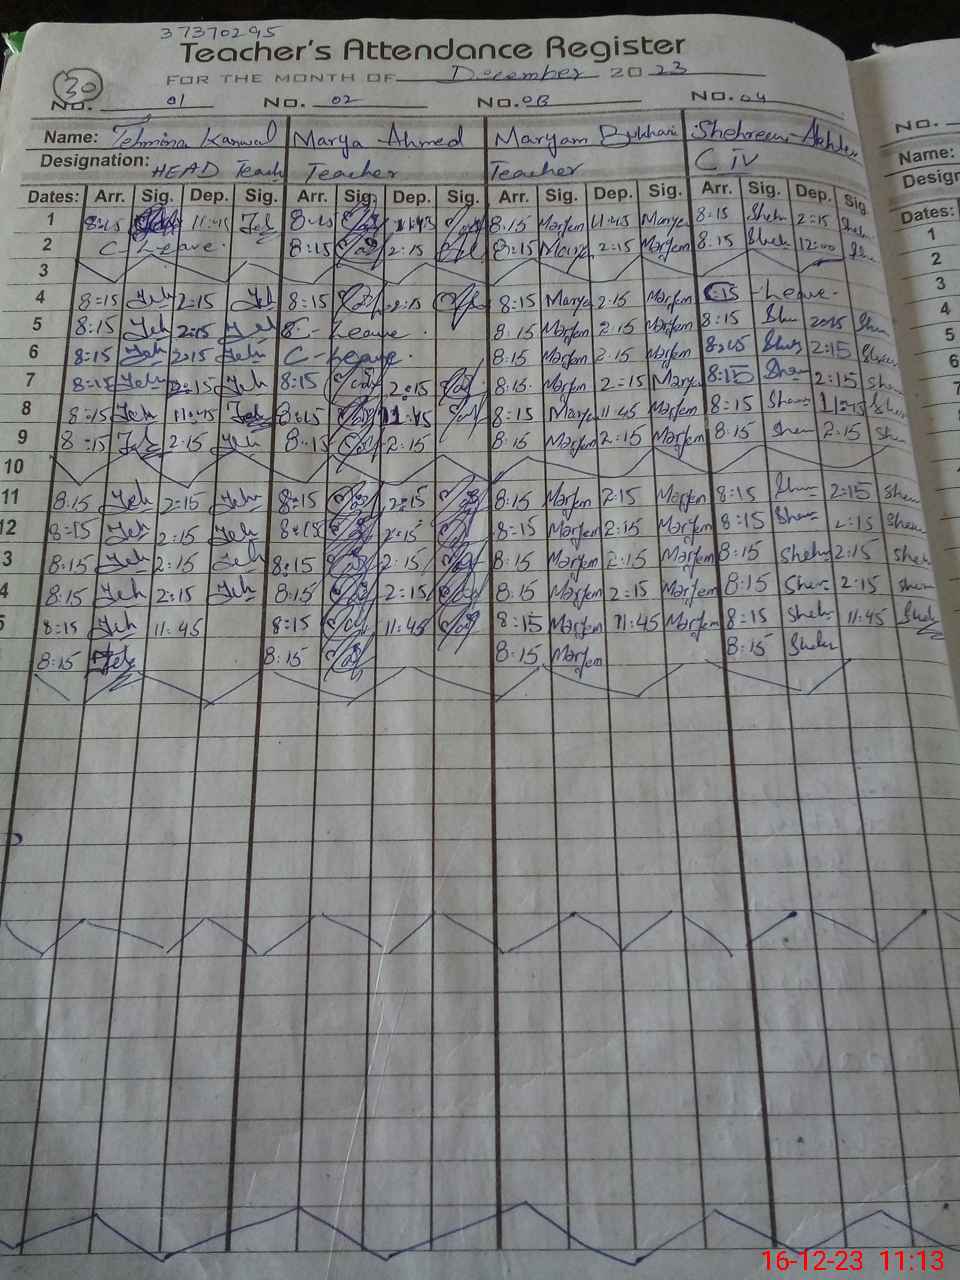 37370295
Teacher's Attendance Register
30 FOR THE MONTH OF December 2023
No. 01 No. 02 No. 03 No. 04 No.
Name: Tehmina Kanwal Marya Ahmed Maryam Bukhari Name:
Designation: HEAD Teach Teacher Teacher C IV Design
Dates: Arr. Sig. Dep. Sig. Arr. Sig. Dep. Sig. Arr. Sig. Dep. Sig. Arr. Sig. Dep. Sig. Dates:
1 8:15 11:45 Teh 8:15 11:45 8:15 Maryam 11:45 Marya 8:15 Sheh 2:15 Sheh 1
2 C-Leave. 8:15 2:15 8:15 Marya 2:15 Maryam 8:15 Sheh 12:00 2
3 3
4 8:15 Teh 2:15 Teh 8:15 2:15 8:15 Marya 2:15 Maryam 8:15 -Leave- 4
5 8:15 Teh 2:15 Teh C-Leave. 8:15 Maryam 2:15 Maryam 8:15 She 2:15 Sheh 5
6 8:15 Teh 2:15 Teh C-Leave. 8:15 Maryam 2:15 Maryam 8:15 Sheh 2:15 Sheh 6
7 8:15 Teh 2:15 Teh 8:15 2:15 8:15 Maryam 2:15 Marya 8:15 She 2:15 She 7
8 8:15 Teh 11:45 Teh 8:15 11:45 8:15 Marya 11:45 Maryam 8:15 She 11:45 She 8
9 8:15 Teh 2:15 Teh 8:15 2:15 8:15 Maryam 2:15 Maryam 8:15 She 2:15 She
10
11 8:15 Teh 2:15 Teh 8:15 2:15 8:15 Maryam 2:15 Maryam 8:15 She 2:15 She
12 8:15 Teh 2:15 Teh 8:15 2:15 8:15 Maryam 2:15 Maryam 8:15 She 2:15 She
3 8:15 Teh 2:15 Teh 8:15 2:15 8:15 Maryam 2:15 Maryam 8:15 Sheh 2:15 Sheh
4 8:15 Teh 2:15 Teh 8:15 2:15 8:15 Maryam 2:15 Maryam 8:15 Sheh 2:15 She
5 8:15 Teh 11:45 8:15 11:45 8:15 Maryam 11:45 Maryam 8:15 Sheh 11:45 Sheh
8:15 Teh 8:15 8:15 Maryam 8:15 Sheh
16-12-23 11:13